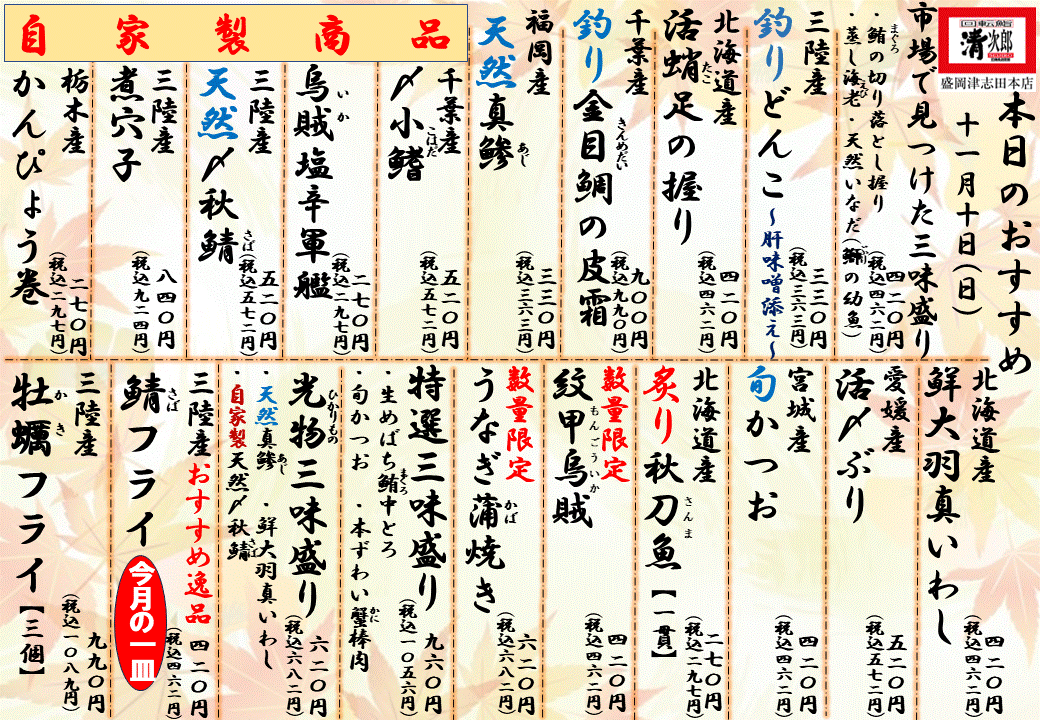 回転鮨
清次郎
盛岡津志田本店
本日のおすすめ
十一月十日(日)
市場で見つけた三味盛り
・鮪の切り落とし握り
まぐろ
・蒸し海老・天然いなだ(鰤の幼魚)
えび
ぶり
四二〇円
(税込四六二円)
三陸産
釣りどんこ~肝味噌添え~
三三〇円
(税込三六三円)
北海道産
活蛸足の握り
たこ
四二〇円
(税込四六二円)
千葉産
釣り金目鯛の皮霜
きんめだい
九〇〇円
(税込九九〇円)
福岡産
天然真鯵
あじ
三三〇円
(税込三六三円)
自家製商品
千葉産
〆小鰭
こはだ
五二〇円
(税込五七二円)
烏賊塩辛軍艦
いか
二七〇円
(税込二九七円)
三陸産
天然〆秋鯖
さば
五二〇円
(税込五七二円)
三陸産
煮穴子
八四〇円
(税込九二四円)
栃木産
かんぴょう巻
二七〇円
(税込二九七円)
北海道産
鮮大羽真いわし
四二〇円
(税込四六二円)
愛媛産
活〆ぶり
五二〇円
(税込五七二円)
宮城産
旬かつお
四二〇円
(税込四六二円)
北海道産
炙り秋刀魚【一貫】
さんま
二七〇円
(税込二九七円)
数量限定
紋甲烏賊
もんごういか
四二〇円
(税込四六二円)
数量限定
うなぎ蒲焼き
かば
六二〇円
(税込六八二円)
特選三味盛り
・生めばち鮪中とろ
まぐろ
・旬かつお ・本ずわい蟹棒肉
かに
九六〇円
(税込一〇五六円)
光物三味盛り
ひかりもの
・天然真鯵 ・鮮大羽真いわし
あじ
・自家製天然〆秋鯖
さば
六二〇円
(税込六八二円)
三陸産おすすめ逸品
鯖フライ
さば
今月の一皿
四二〇円
(税込四六二円)
三陸産
牡蠣フライ【三個】
かき
九九〇円
(税込一〇八九円)